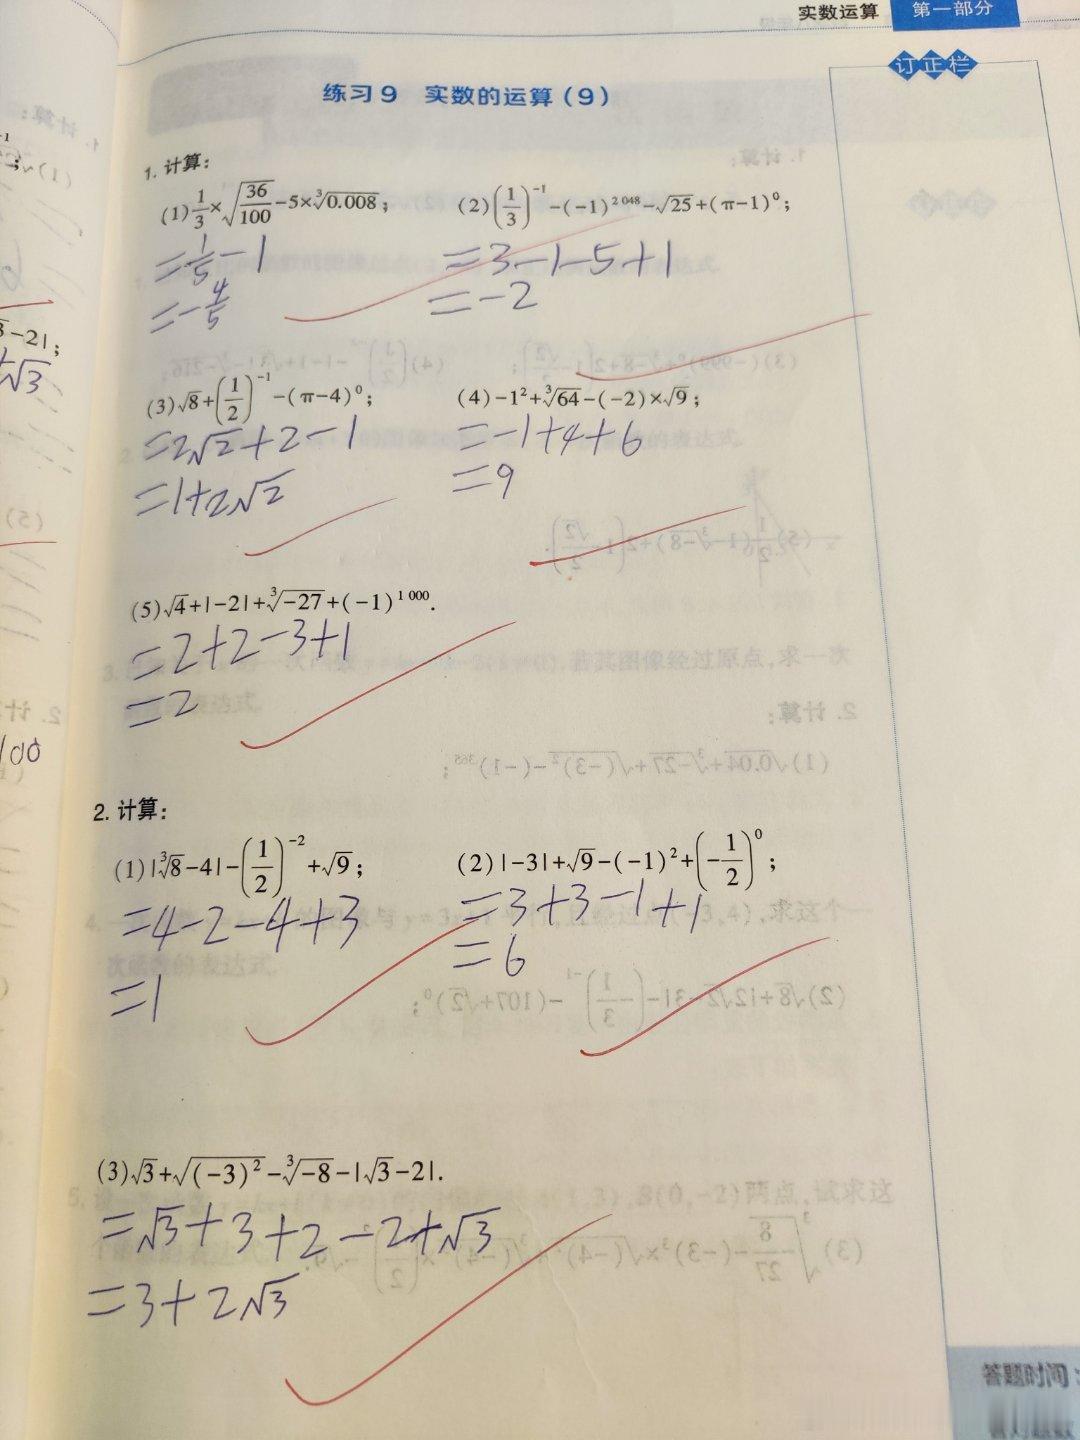 实数运算 第一部分
订正栏
练习9 实数的运算(9)
1. 计算:
(1) 1/3×√(36/100)-5×³√0.008;
=1/5-1
=-4/5
(2) (1/3)⁻¹-(-1)²⁰⁴⁸-√25+(π-1)⁰;
=3-1-5+1
=-2
(3) √8+(1/2)⁻¹-(π-4)⁰;
=2√2+2-1
=1+2√2
(4) -1²+³√64-(-2)×√9;
=-1+4+6
=9
(5) √4+|-2|+³√-27+(-1)¹⁰⁰⁰.
=2+2-3+1
=2
2. 计算:
(1) |³√8-4|-(1/2)⁻²+√9;
=4-2-4+3
=1
(2) |-3|+√9-(-1)²+(-1/2)⁰;
=3+3-1+1
=6
(3) √3+√(-3)²-³√-8-|√3-2|.
=√3+3+2-2+√3
=3+2√3
答题时间: